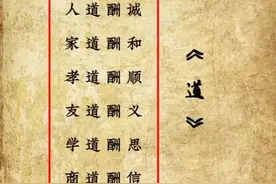 《道》
人道酬诚
家道酬和
孝道酬顺
友道酬义
学道酬思
商道酬信